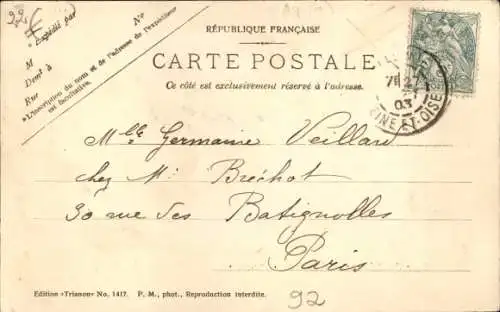 92
* Expédié par
M
Demt à
Rue
N°
*L'inscription du nom et de l'adresse de l'expéditeur
est facultative.
RÉPUBLIQUE FRANÇAISE
CARTE POSTALE
Ce côté est exclusivement réservé à l'adresse.
03
INE-ET-OISE
Mlle Germaine Veillard
chez Mr Bréchot
30 rue des Batignolles
Paris
Edition «Trianon» No. 1417. P. M., phot., Reproduction interdite.
92